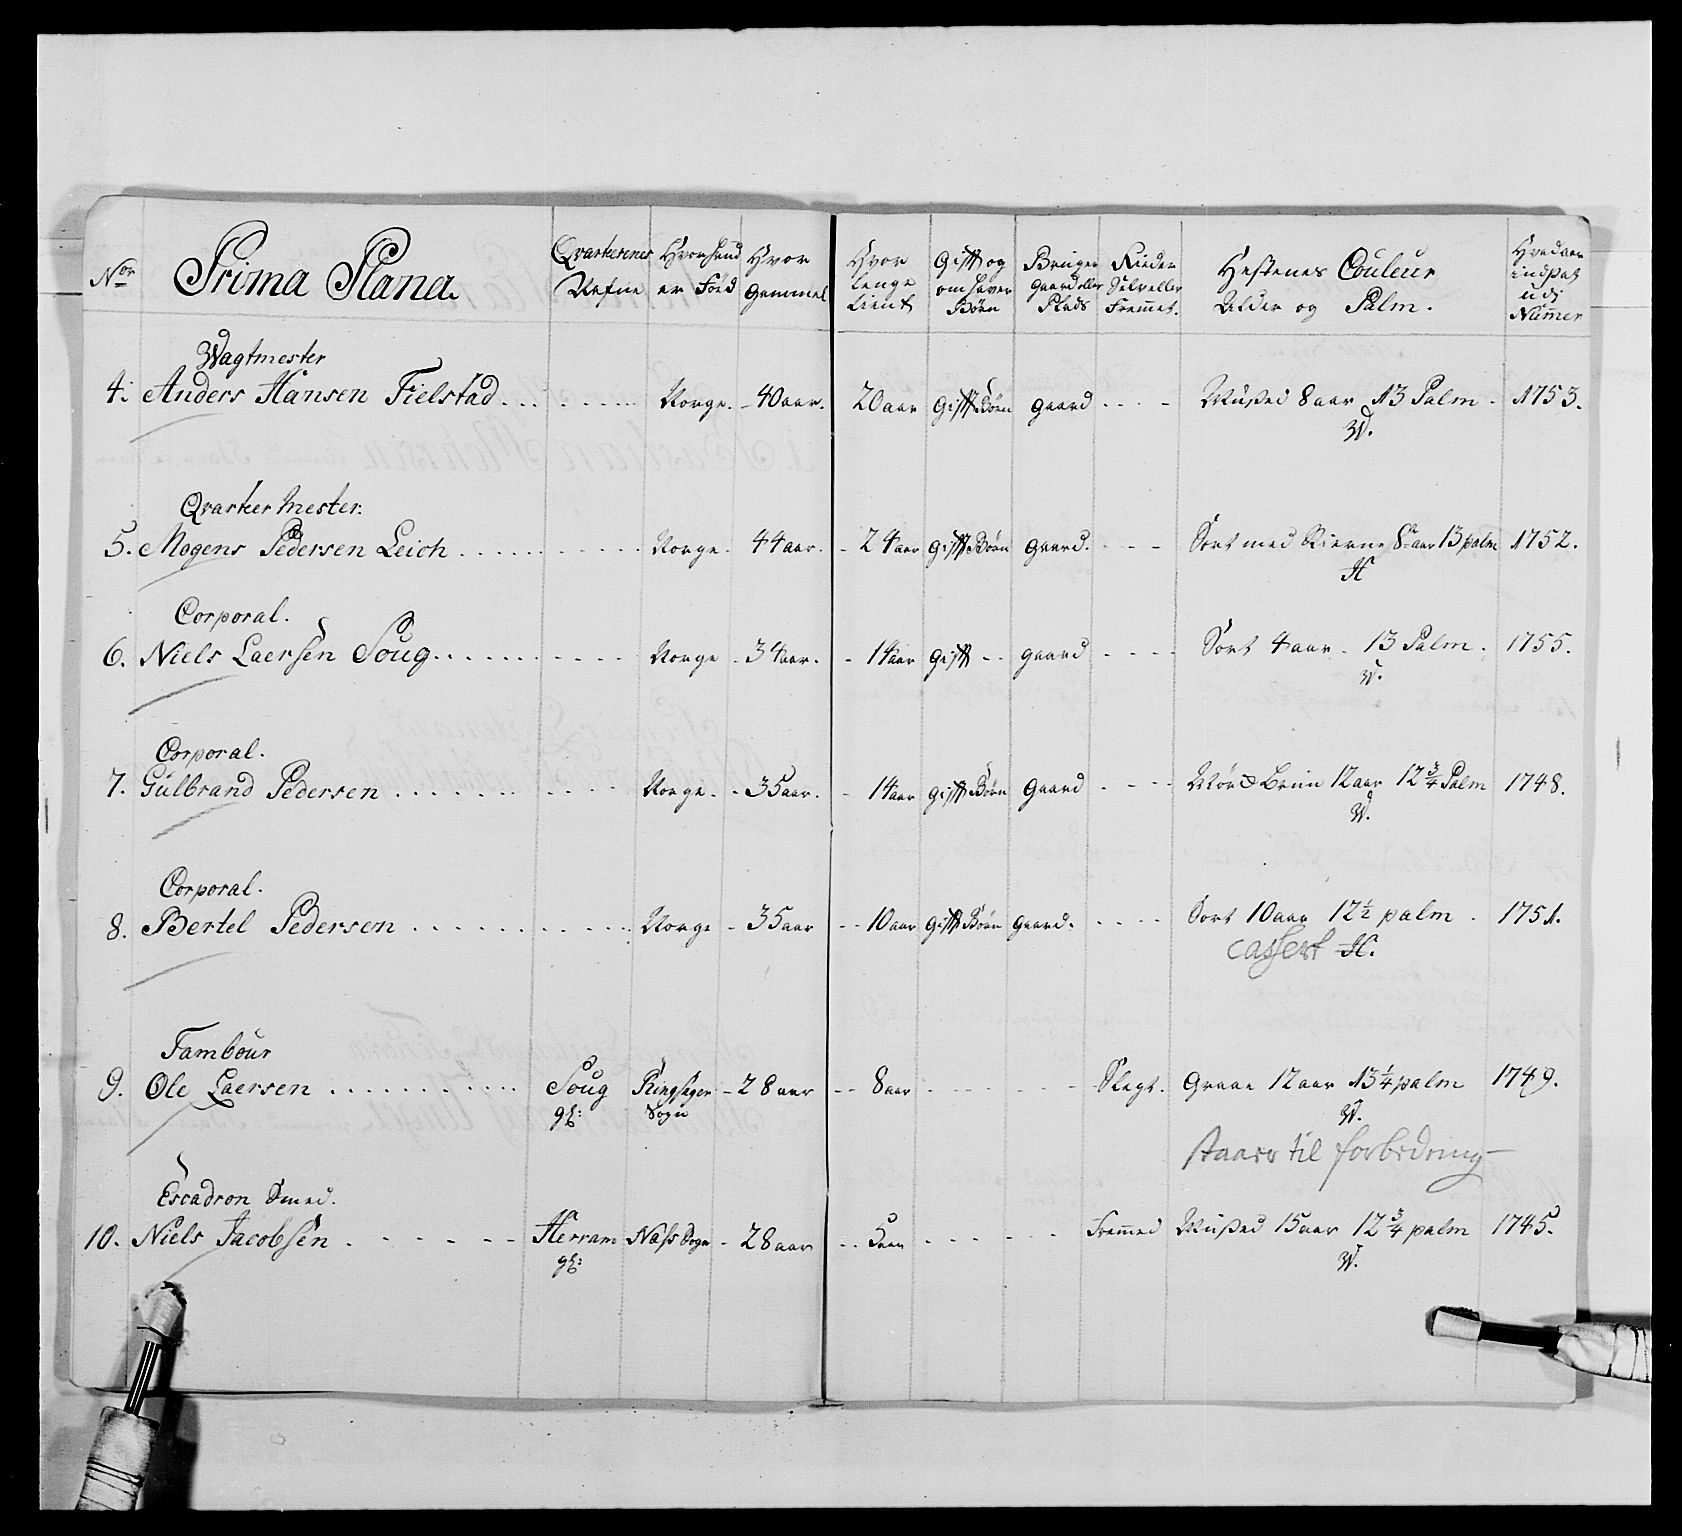 Nor Prima Plana. Qvarterenes Nafne Hvor hand er Föd Hvor Gammel Hvor Lenge tient Gift og om haver Börn Bruger Gaard eller Plads Riider Selv eller Fremmet. Hestenes Couleur Alder og Palm. Hvad aar indsat udj Nummer
Wagtmester
4. Anders Hansen Fielstad Norge. 40 aar. 20 aar Gift Börn Gaard Musset 8 aar 13 Palm. 1753.
W.
Qvarteer Mester.
5. Mogens Pedersen Leich Norge. 44 aar. 24 aar Gift Börn Gaard. Sort med Stierne 8 aar 13 palm 1752.
H
Corporal.
6. Niels Laersen Soug Norge 34 aar. 14 aar Gift gaard Sort 4 aar 13 Palm. 1755.
W.
Corporal.
7. Gulbrand Pedersen Norge. 35 aar. 14 aar Gift Börn Gaard Mörch Brun 12 aar 12 3/4 Palm 1748.
W.
Corporal.
8. Bertel Pedersen Norge 35 aar 10 aar Gift Börn Gaard. Sort 10 aar 12 1/2 palm. 1751.
cassert H.
Tambour
9. Ole Laersen Soug Ringsager 28 aar 8 aar Slegt. Graae 12 aar 13 1/4 palm 1749.
Sogn W.
staaer til forbedring
Escadron Smed.
10. Niels Jacobsen Herram Næss Sogn 28 aar 5 aar Fremmed Musset 15 aar 12 3/4 palm 1745.
W.